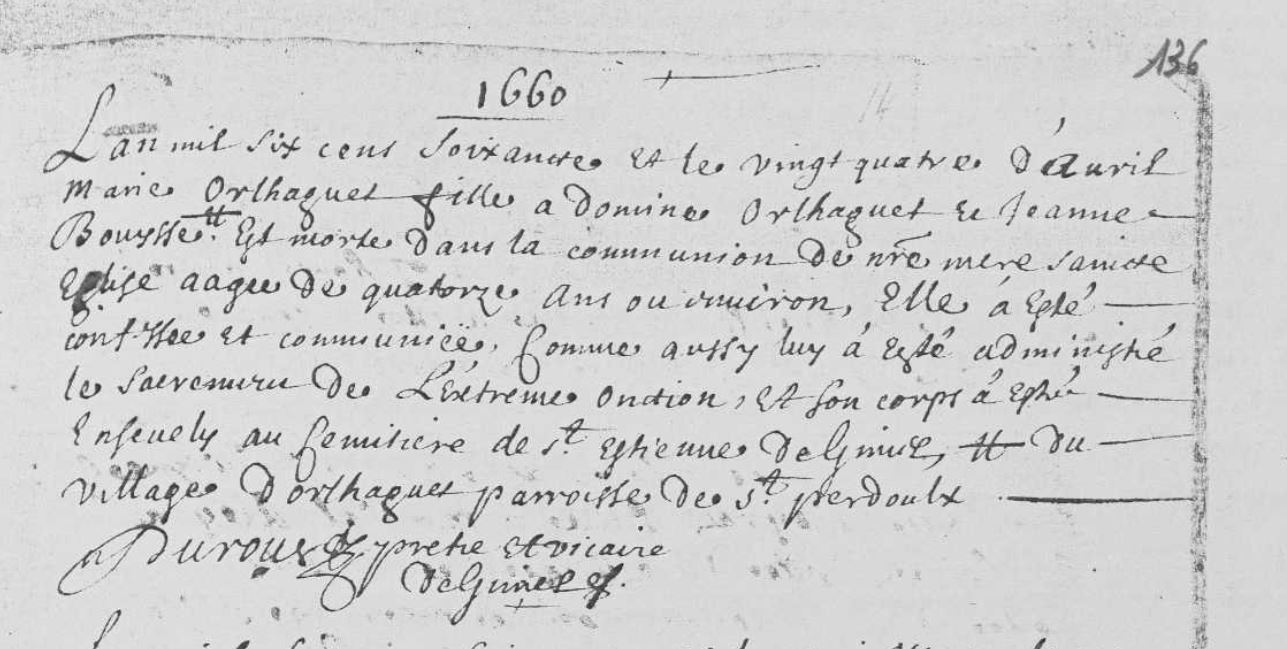 136
1660
14
L'an mil six cens soixante et le vingt quatre d'avril
Marie Orlhaguet fille a Domine Orlhaguet et Jeanne
Bouysse # Est morte dans la communion de nre mere saincte
Eglise aagee de quatorze ans ou environ, Elle á Esté
confessee et communiée, Comme aussy luy á esté administré
le sacremenu de L'éxtreme onction, Et son corps á esté
Ensevely au Cemitiere de st Estienne DelGinié, # Du
village D'orlhaguet parroisse De st perdoulx
Duroux pretre et vicaire
DelGinié